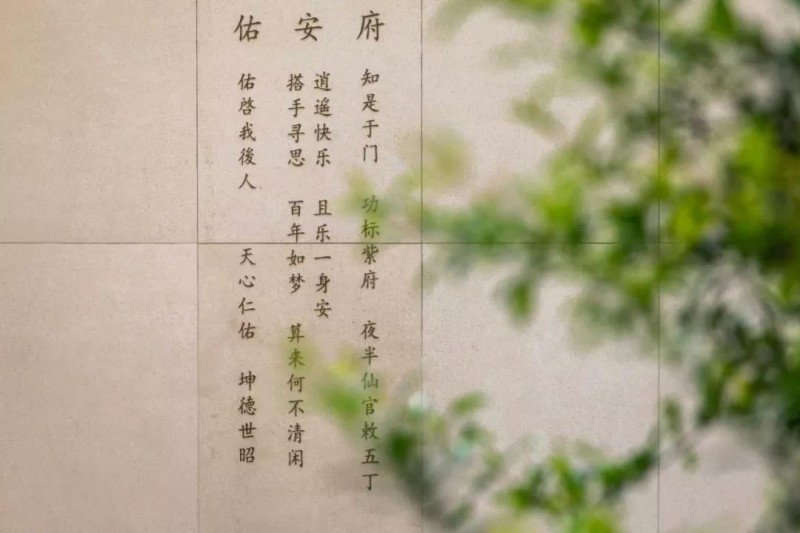 佑安府
佑啓我後人 天心仁佑 坤德世昭
搭手寻思 百年如梦 算来何不清闲
逍遥快乐 且乐一身安
知是于门 功标紫府 夜半仙官敕五丁